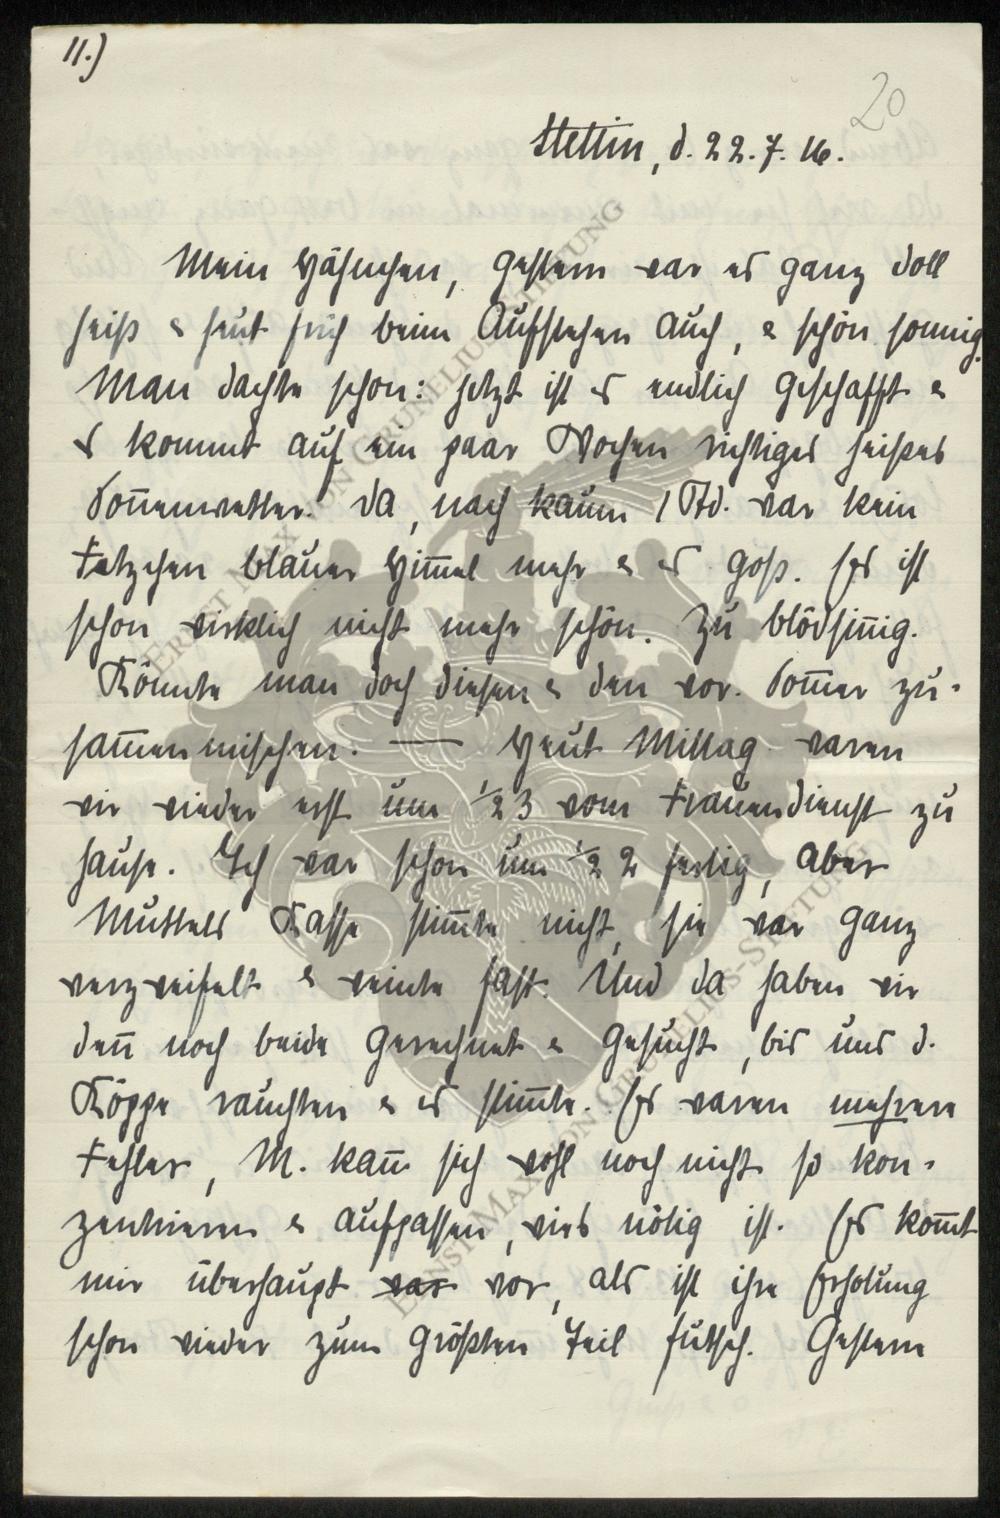 11.)
20
Stettin, d. 22.7.16.
Mein Hähnchen, gestern war es ganz doll
heiß & heut früh beim Aufstehen auch, & schön sonnig.
Man dachte schon: jetzt ist es endlich geschafft &
es kommt auf ein paar Wochen richtiges heißes
Soñenwetter. Da, nach kaum 1 Std. war kein
Fetzchen blauer Him̄el mehr & es goß. Es ist
schon wirklich nicht mehr schön. Zu blödsin̄ig.
Könnte man doch diesen & den vor. Som̄er zu-
sam̄enmischen. — Heut Mittag waren
wir wieder erst um 1/2 3 vom Frauendienst zu
hause. Ich war schon um 1/2 2 fertig, aber
Muttels Kasse stim̄te nicht, sie war ganz
verzweifelt & weinte fast. Und da haben wir
den̄ noch beide gerechnet & gesucht, bis uns d.
Köppe rauchten & es stim̄te. Es waren mehrere
Fehler, M. kan̄ sich wohl noch nicht so kon-
zentrieren & aufpassen, wies nötig ist. Es kom̄t
mir überhaupt war vor, als ist ihre Erholung
schon wieder zum größten Teil futsch. Gestern
ERNST MAX VON GRUNELIUS-STIFTUNG
ERNST MAX VON GRUNELIUS-STIFTUNG